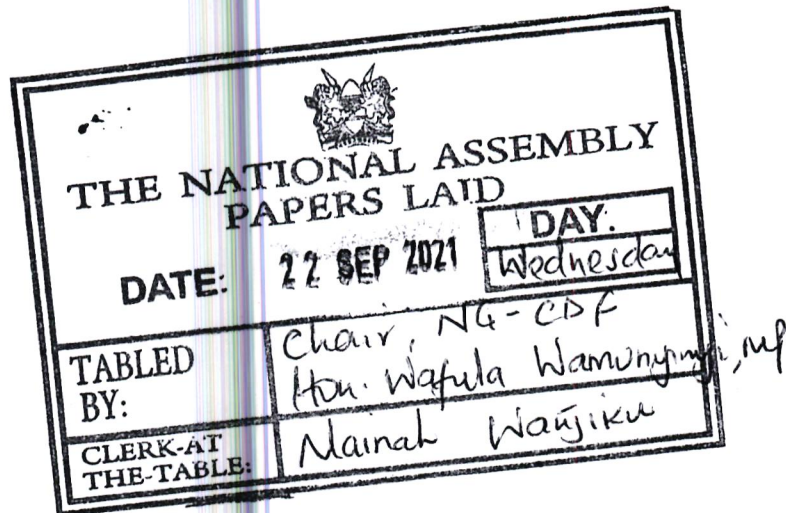 THE NATIONAL ASSEMBLY
PAPERS LAID
DATE: 22 SEP 2021
DAY:
Wednesday
TABLED
BY:
Chair, NG-CDF
Hon. Wafula Wamunyinyi, MP
CLERK-AT
THE-TABLE:
Mainah Wanjiku